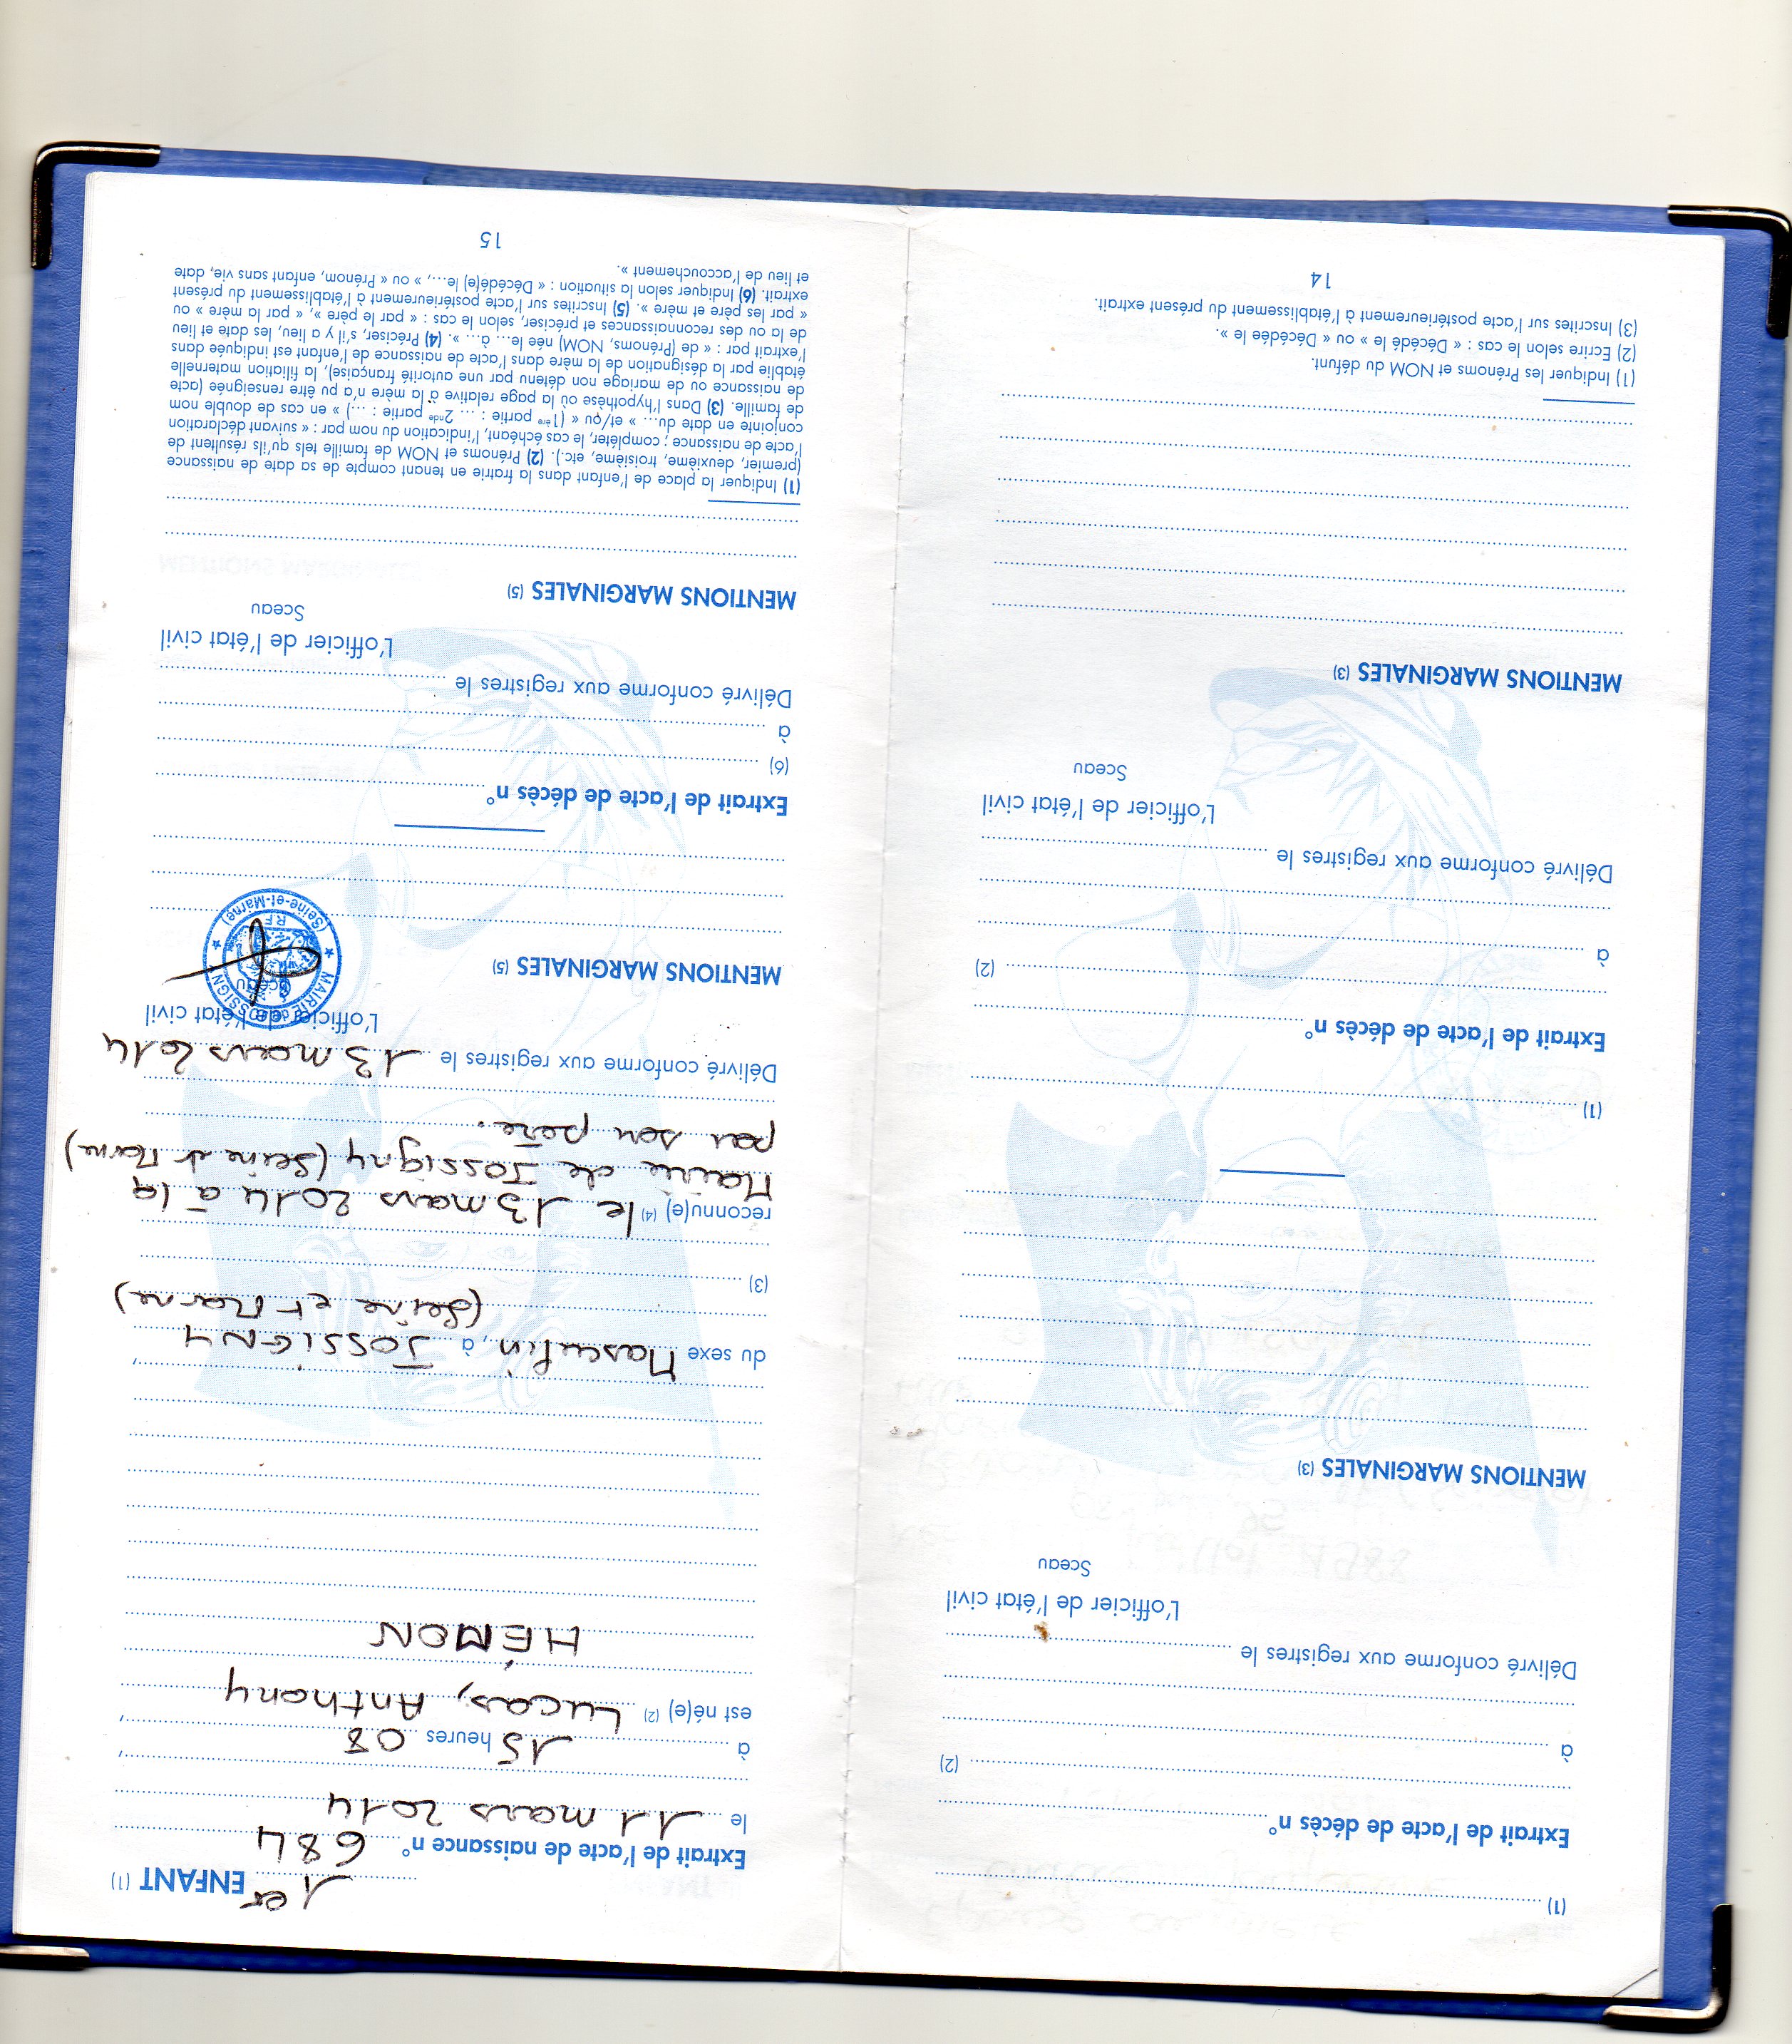 (1)
Extrait de l'acte de décès n°
(2)
à
Délivré conforme aux registres le
L'officier de l'état civil
Sceau
MENTIONS MARGINALES (3)
(1)
Extrait de l'acte de décès n°
(2)
à
Délivré conforme aux registres le
L'officier de l'état civil
Sceau
MENTIONS MARGINALES (3)
(1) Indiquer les Prénoms et NOM du défunt.
(2) Ecrire selon le cas : « Décédé le » ou « Décédée le ».
(3) Inscrites sur l'acte postérieurement à l'établissement du présent extrait.
14
1er ENFANT (1)
Extrait de l'acte de naissance n° 684
le 11 mars 2014
à 15 heures 08
est né(e) (2) Lucas, Anthony
HÉMON
du sexe Masculin, à JOSSIGNY
(Seine et Marne)
(3)
reconnu(e) (4) le 13 mars 2014 à la
Mairie de Jossigny (Seine et Marne)
par son père.
Délivré conforme aux registres le 13 mars 2014
L'officier de l'état civil
Sceau
MAIRIE de JOSSIGNY
RF
(Seine-et-Marne)
MENTIONS MARGINALES (5)
Extrait de l'acte de décès n°
(6)
à
Délivré conforme aux registres le
L'officier de l'état civil
Sceau
MENTIONS MARGINALES (5)
(1) Indiquer la place de l'enfant dans la fratrie en tenant compte de sa date de naissance
(premier, deuxième, troisième, etc.). (2) Prénoms et NOM de famille tels qu'ils résultent de
l'acte de naissance ; compléter, le cas échéant, l'indication du nom par : « suivant déclaration
conjointe en date du... » et/ou « (1ère partie : ... 2nde partie : ...) » en cas de double nom
de famille. (3) Dans l'hypothèse où la page relative à la mère n'a pu être renseignée (acte
de naissance ou de mariage non détenu par une autorité française), la filiation maternelle
établie par la désignation de la mère dans l'acte de naissance de l'enfant est indiquée dans
l'extrait par : « de (Prénoms, NOM) née le... à... ». (4) Préciser, s'il y a lieu, les date et lieu
de la ou des reconnaissances et préciser, selon le cas : « par le père », « par la mère » ou
« par les père et mère ». (5) Inscrites sur l'acte postérieurement à l'établissement du présent
extrait. (6) Indiquer selon la situation : « Décédé(e) le..., » ou « Prénom, enfant sans vie, date
et lieu de l'accouchement ».
15